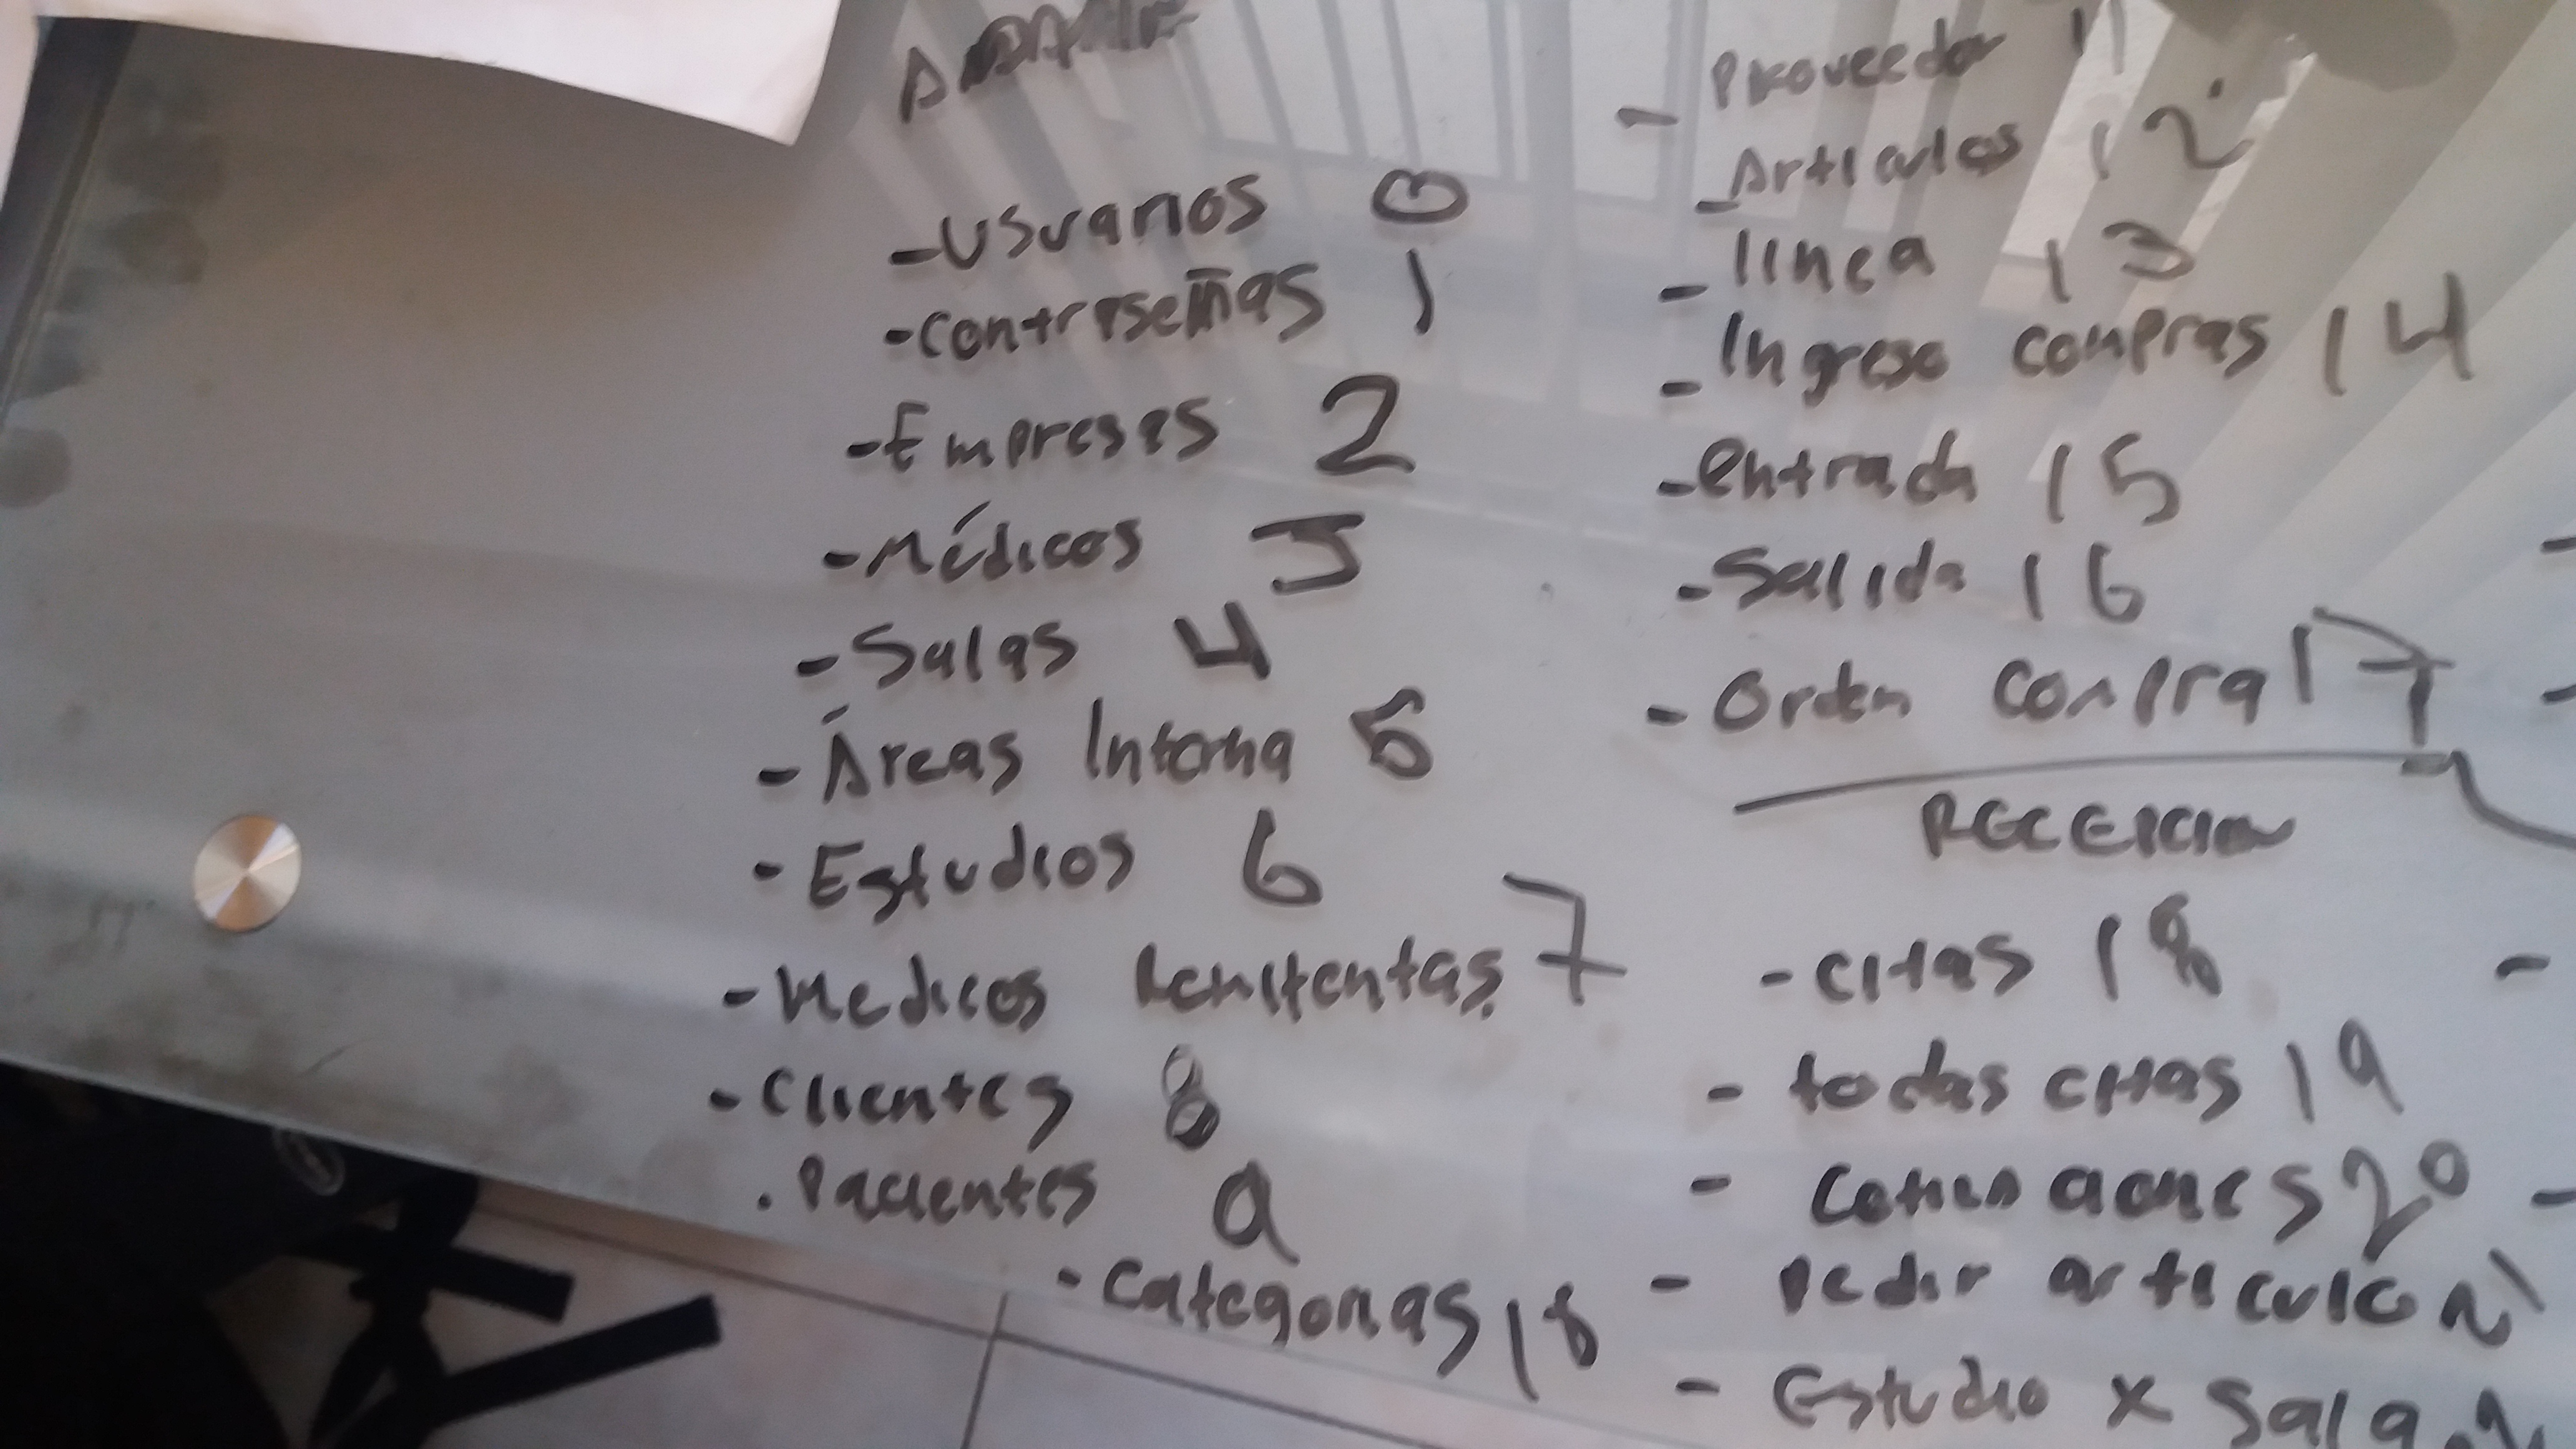 - Usuarios 0
- Contraseñas 1
- Empresas 2
- Médicos 3
- Salas 4
- Áreas Interna 5
- Estudios 6
- Medicos Remitentas 7
- Clientes 8
. Pacientes 9
- Categorias 18
- Proveedor 11
- Articulos 12
- linea 13
- Ingreso compras 14
- entrada 15
- Salida 16
- Orden Compra 17
RECEPCION
- citas 18
- todas citas 19
- 20
- Pedir articulo 21
- Estudio x Sala